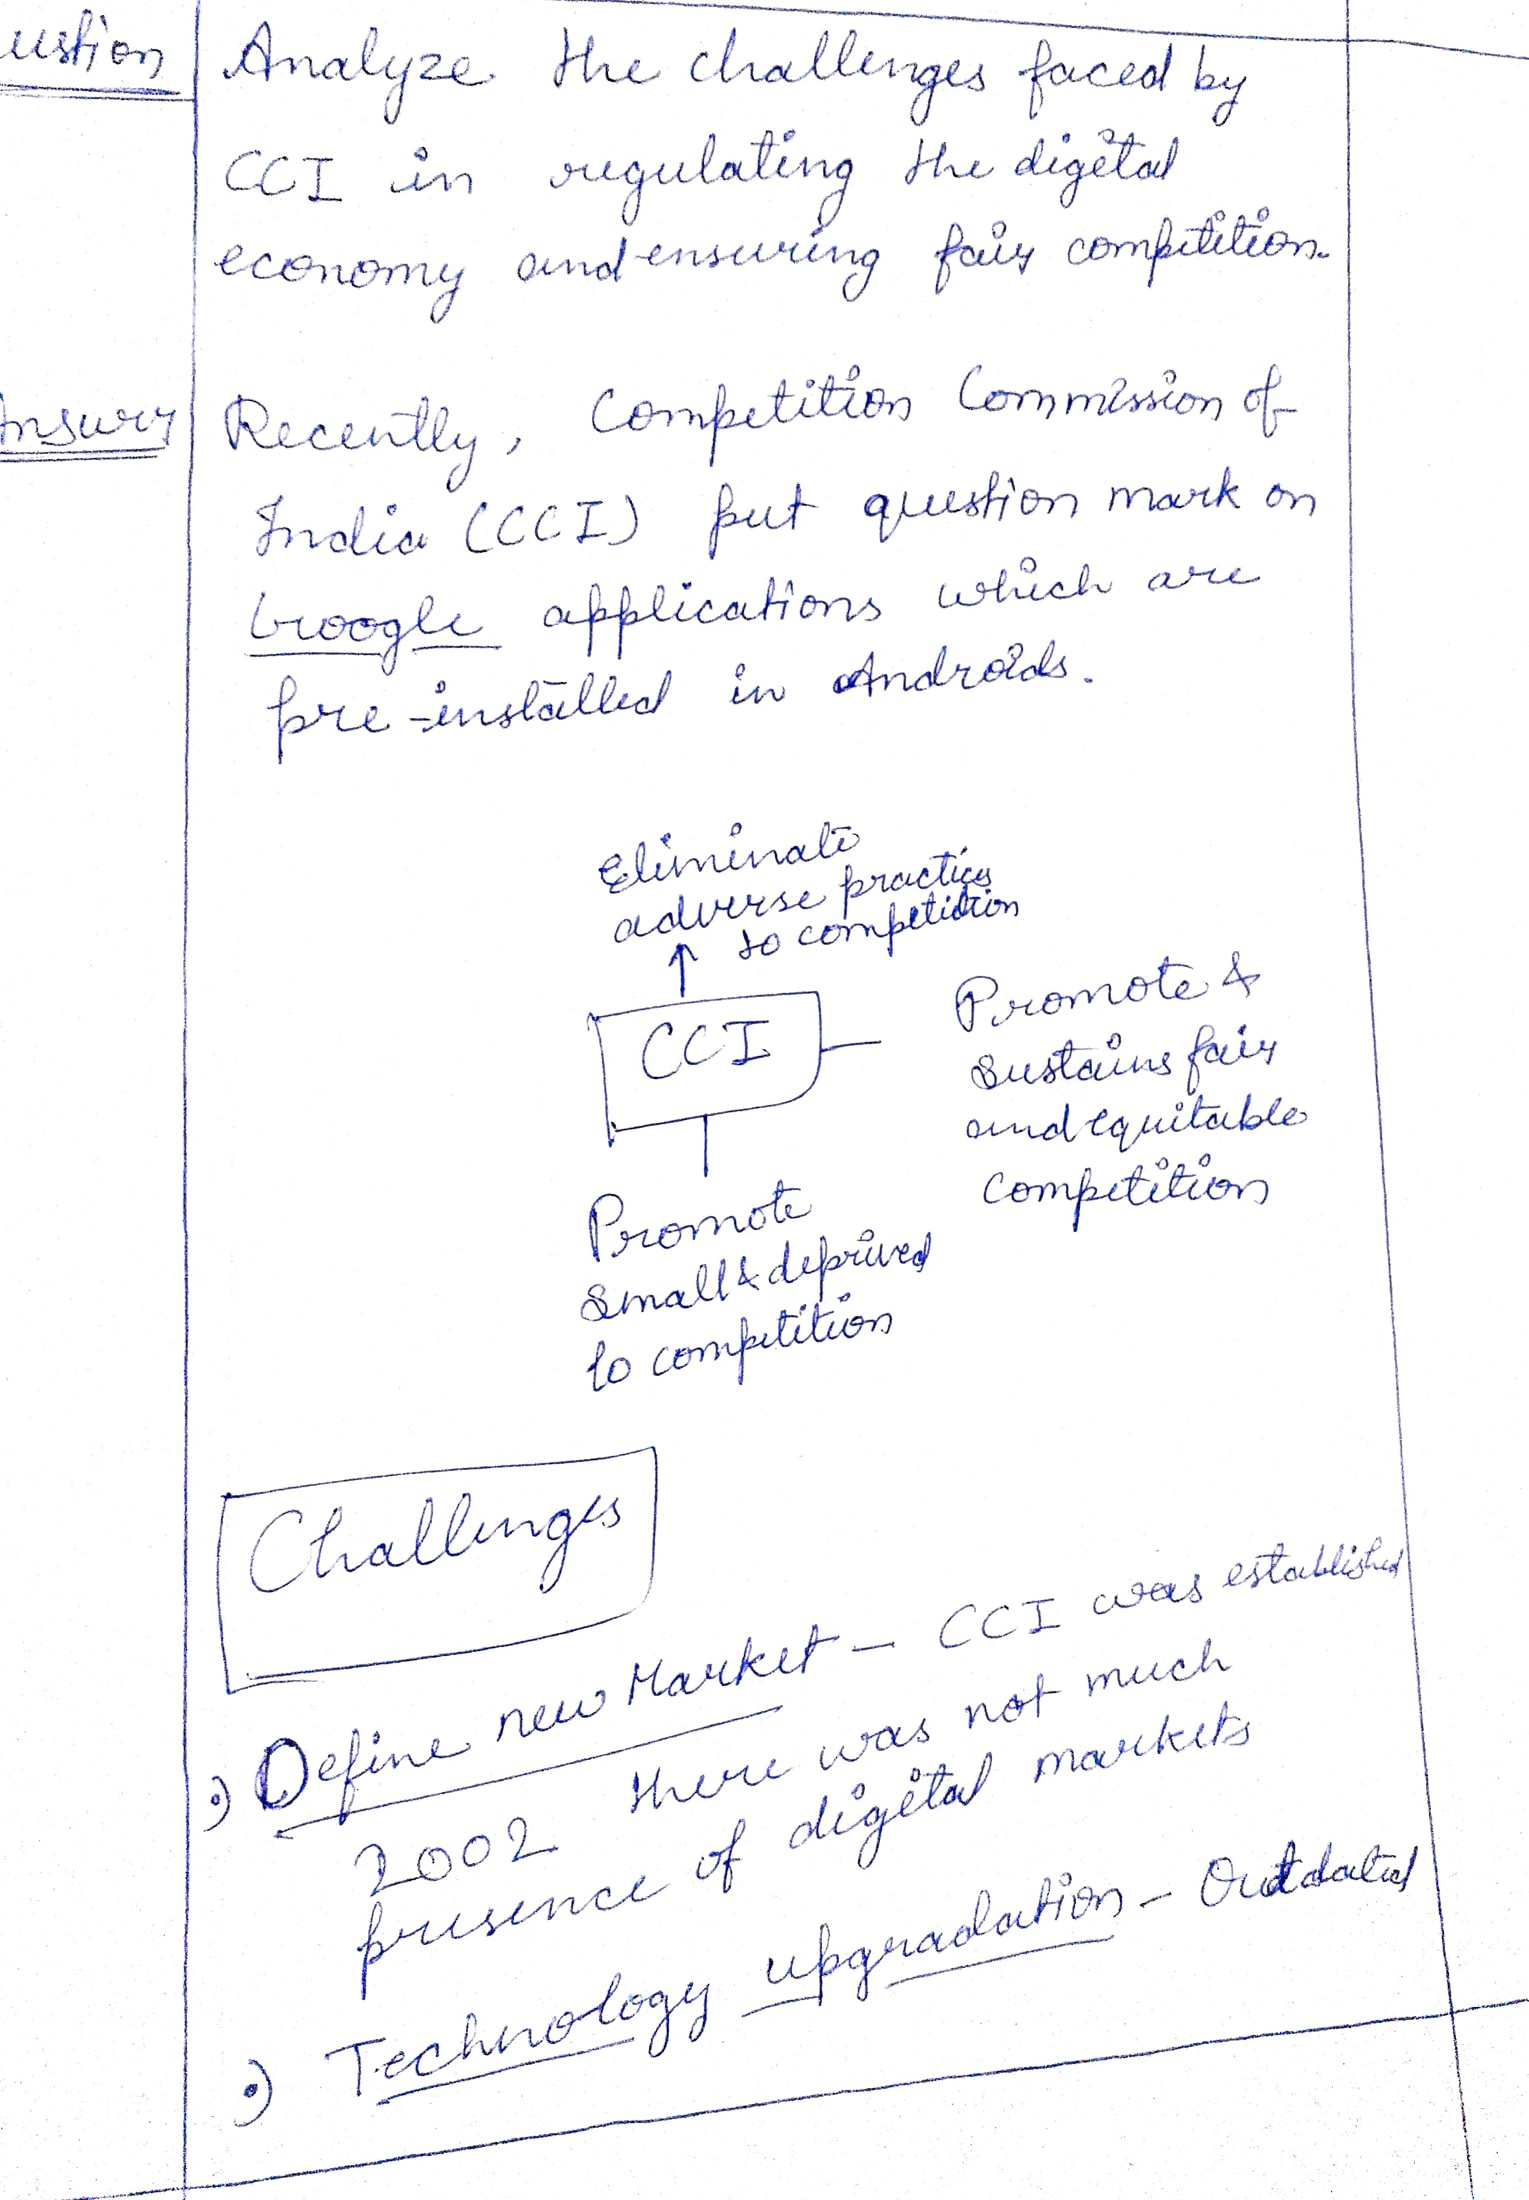 ustion
Analyze the challenges faced by
CCI in regulating the digital
economy and ensuring fair competition.
Answer
Recently, Competition Commission of
India (CCI) put question mark on
Google applications which are
pre-installed in Androids.
Eliminate
adverse practices
to competition
CCI
Promote &
sustains fair
and equitable
competition
Promote
small & deprived
to competition
Challenges
•) Define new Market – CCI was established
2002 there was not much
presence of digital markets
•) Technology upgradation – Outdated